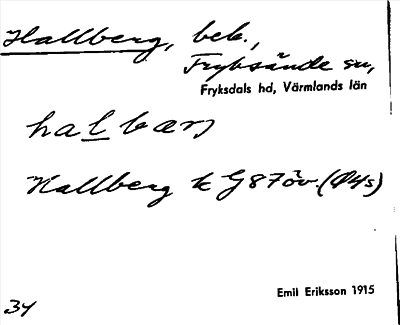 Hallberg, beb.,
Fryksände sn,
Fryksdals hd, Värmlands län
halbærj
Hallberg k G87öv.
Emil Eriksson 1915
34